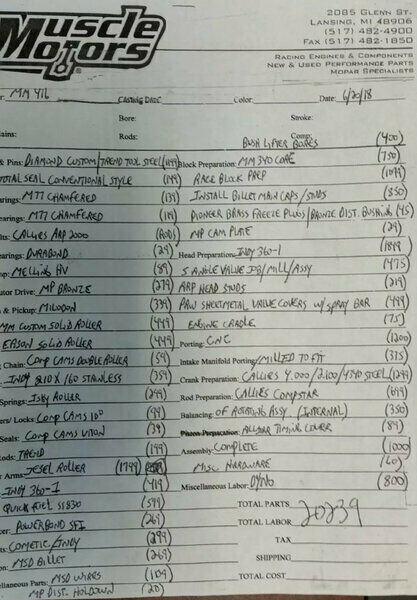 Muscle Motors
2085 GLENN ST.
LANSING, MI 48906
(517) 482-4900
FAX (517) 482-1850
RACING ENGINES & COMPONENTS
NEW & USED PERFORMANCE PARTS
MOPAR SPECIALISTS
MM 416 Casting Date: Color: Date: 6/20/18
Bore: Stroke:
Rods: Comp:
BUSH LIFTER BORES (400)
& Pins: DIAMOND CUSTOM/TREND TOOL STEEL Block Preparation: MM 340 CORE (750)
TOTAL SEAL CONVENTIONAL STYLE (199) RACE BLOCK PREP (1099)
M77 CHAMFERED (139) INSTALL BILLET MAIN CAPS/STUDS (850)
M77 CHAMFERED (119) PIONEER BRASS FREEZE PLUGS/BRONZE DIST. BUSHING (45)
CALLIES ARP 2000 (RODS) MP CAM PLATE (29)
DURABOND (29) Head Preparation: INDY 360-1 (1849)
MELLING HV (89) 5 ANGLE VALVE JOB/MILL/ASSY (475)
MP BRONZE (279) ARP HEAD STUDS (219)
& Pickup: MILODON (339) PAW SHEETMETAL VALVE COVERS W/ SPRAY BAR (499)
MM CUSTOM SOLID ROLLER (449) ENGINE CRADLE (75)
SOLID ROLLER (499) Porting: CNC (1200)
Chain: COMP CAMS DOUBLE ROLLER (59) Intake Manifold Porting: MILLED TO FIT (315)
INDY 2.10 X 1.60 STAINLESS (359) Crank Preparation: CALLIES 4.000/2.100/4340 STEEL (1299)
Springs: ISKY ROLLER (299) Rod Preparation: CALLIES COMPSTAR (699)
Locks: COMP CAMS 10° (99) Balancing: OF ROTATING ASSY. (INTERNAL) (350)
Seals: COMP CAMS VITON (39) Piston Preparation: ALLSTAR TIMING COVER (89)
TREND (199) Assembly: COMPLETE (1000)
Arms: JESEL ROLLER (1799) MISC. HARDWARE (60)
INDY 360-1 (419) Miscellaneous Labor: DYNO (800)
QUICK FUEL (599) TOTAL PARTS
POWERBOND SFI (269) TOTAL LABOR 20239
COMETIC/INDY (299) TAX
MSD BILLET (269) SHIPPING
Miscellaneous Parts: MSD WIRES (109) TOTAL COST
MP DIST. HOLDOWN (20)